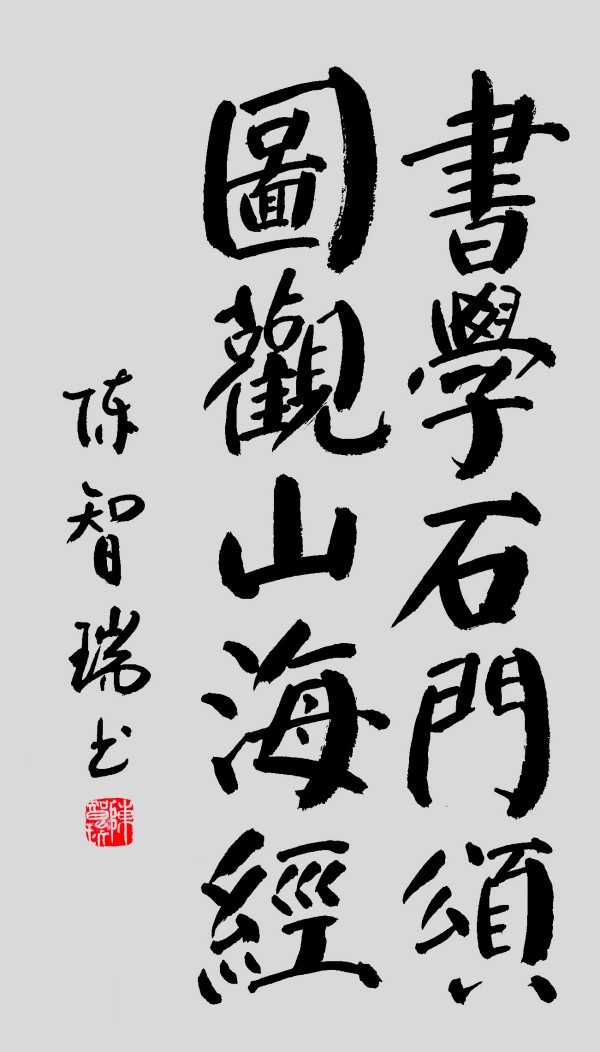 書學石門頌
圖觀山海經
陈智瑞书
陳智瑞